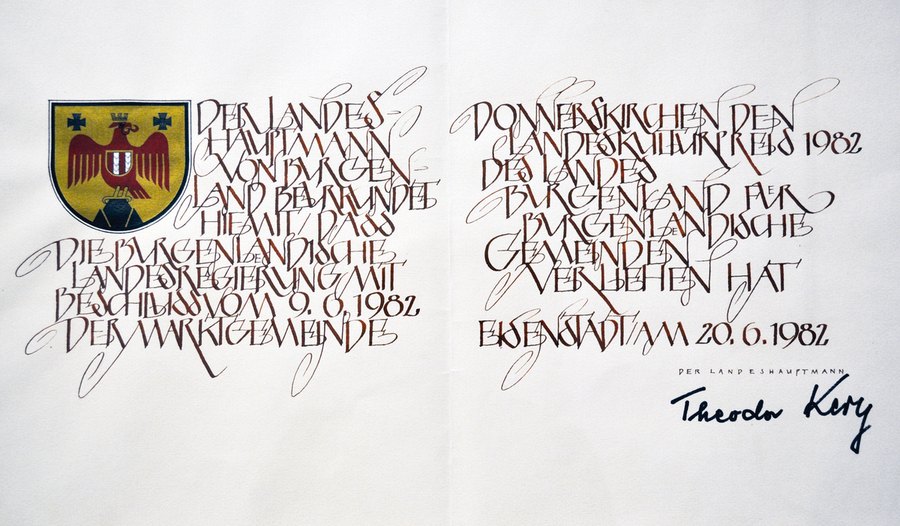 DER LANDES-
HAUPTMANN
VON BURGEN-
LAND BEURKUNDET
HIEMIT, DASS
DIE BURGENLAENDISCHE
LANDESREGIERUNG MIT
BESCHLUSS VOM 9. 6. 1982
DER MARKTGEMEINDE
DONNERSKIRCHEN DEN
LANDESKULTURPREIS 1982
DES LANDES
BURGENLAND FUER
BURGENLAENDISCHE
GEMEINDEN
VERLIEHEN HAT
EISENSTADT, AM 20. 6. 1982
DER LANDESHAUPTMANN
Theodor Kery